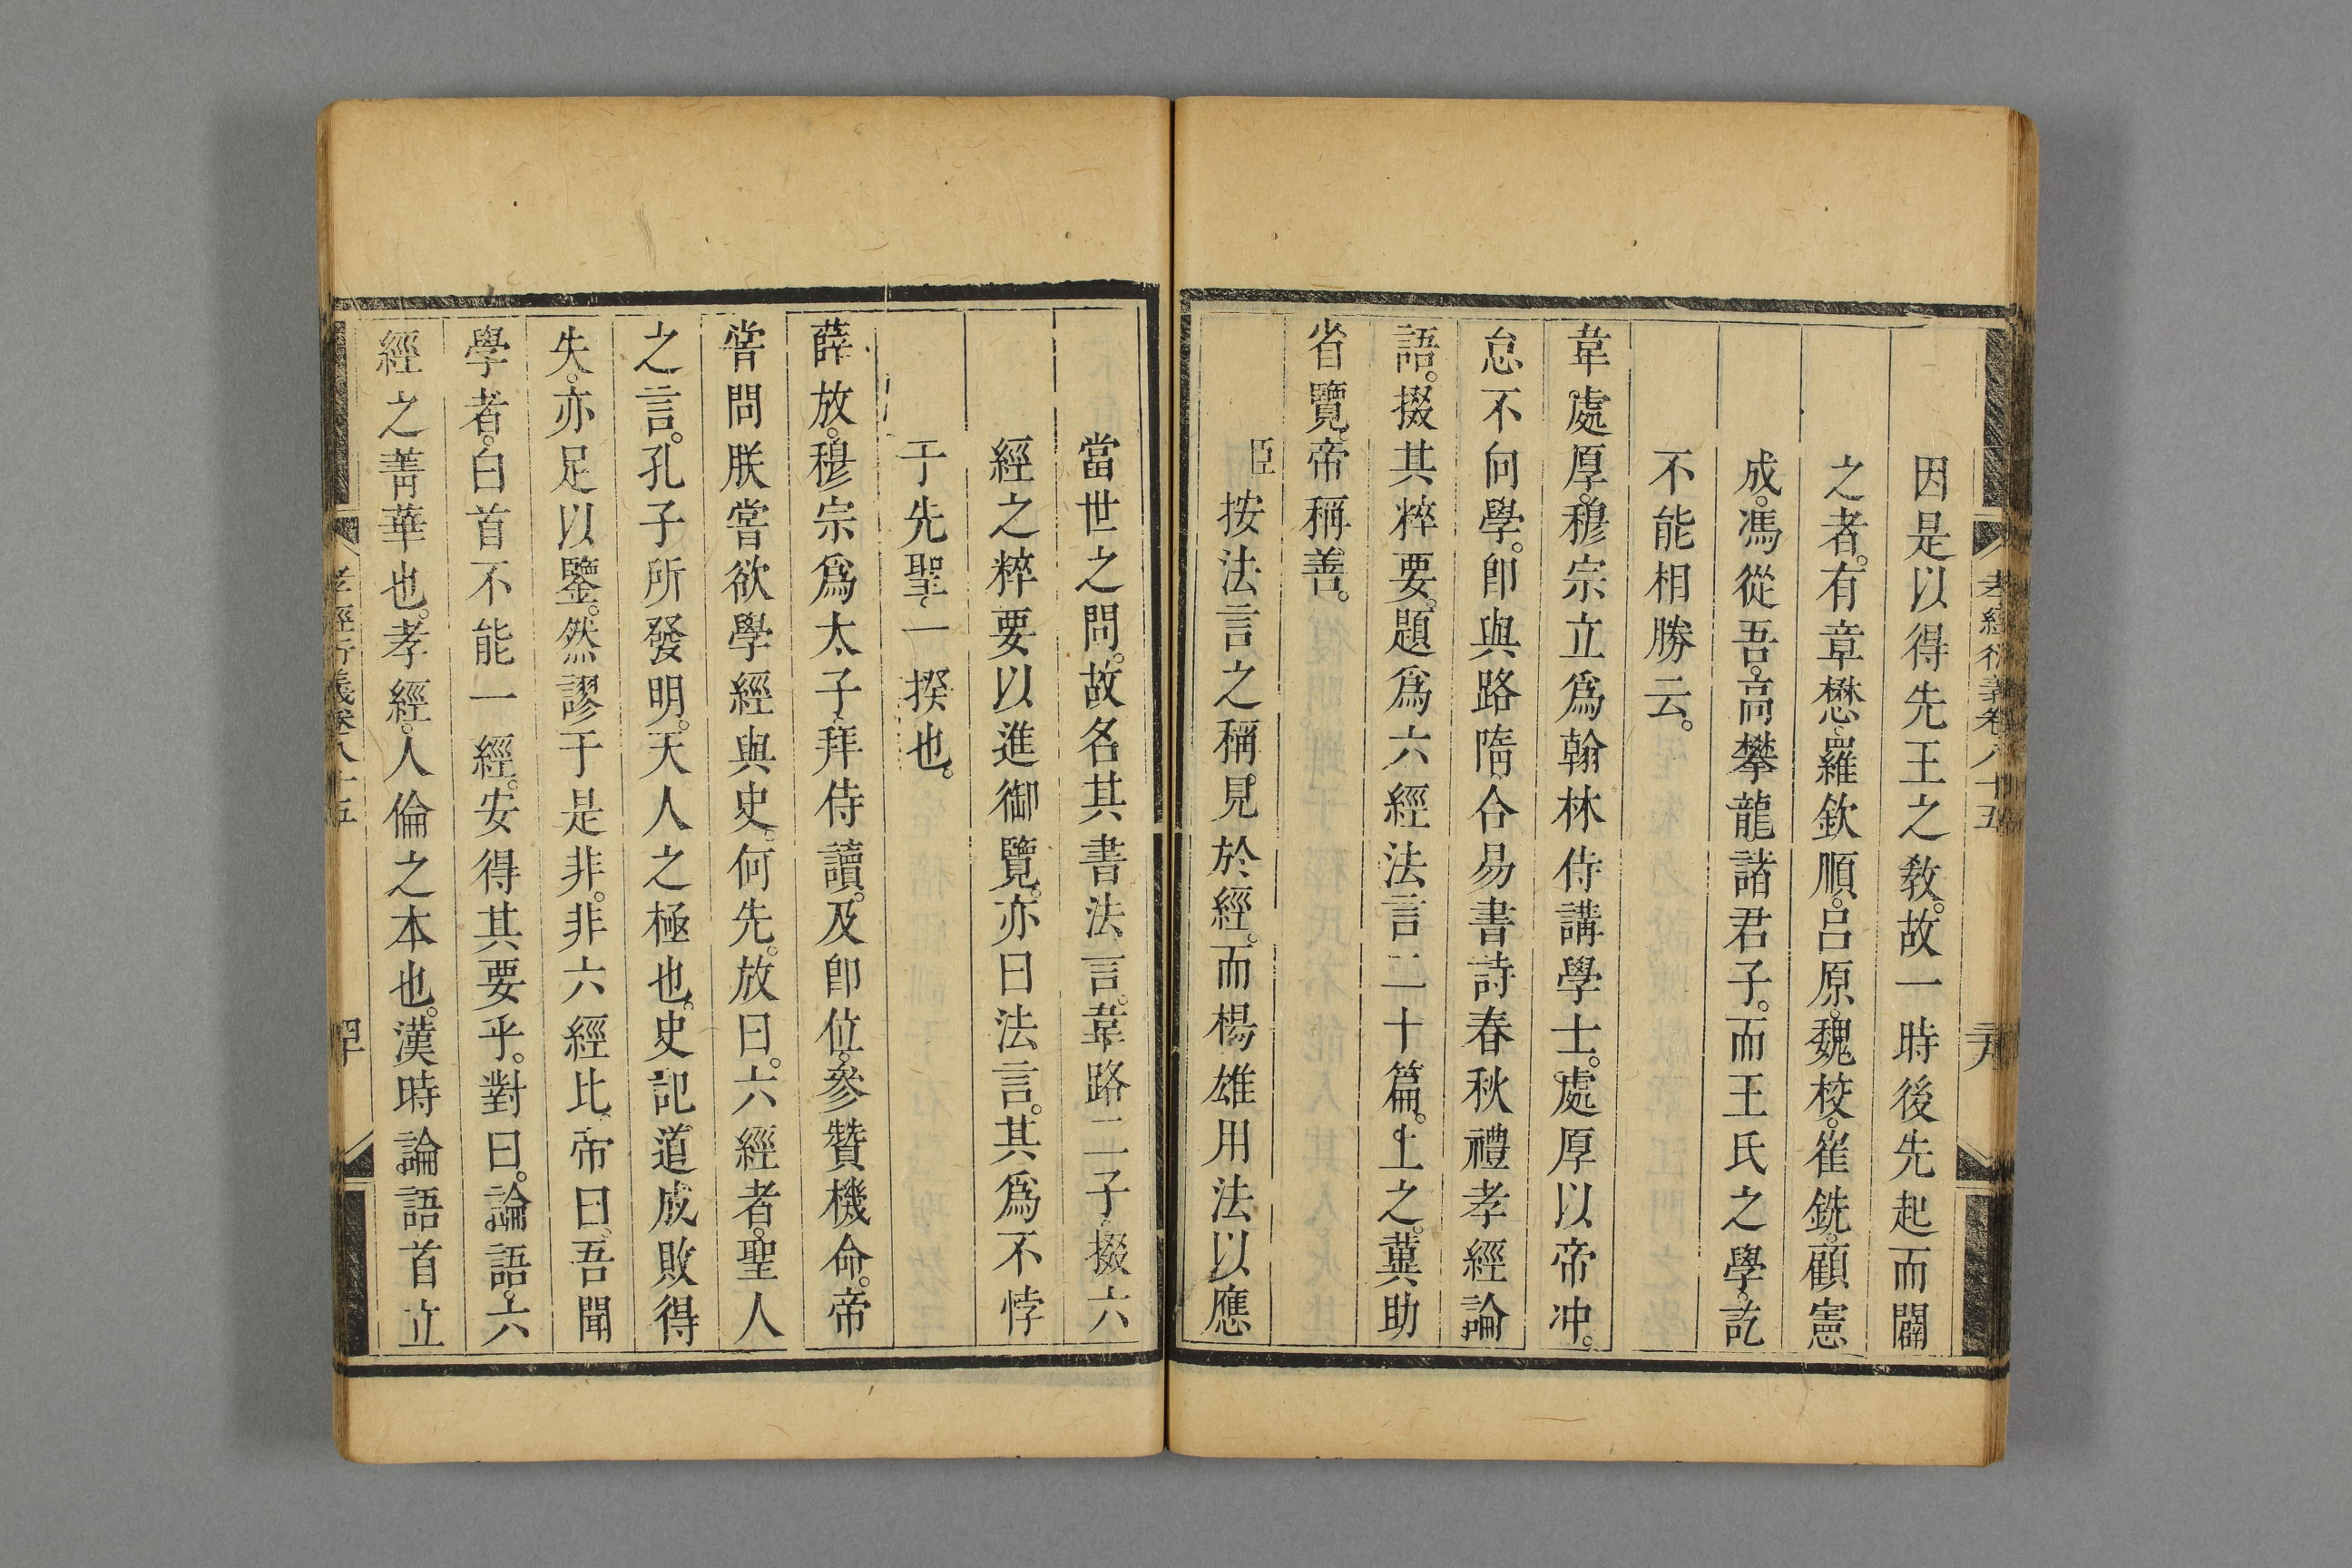 孝經衍義卷八十五
因是以得先王之教。故一時後先起而闢
之者。有章懋、羅欽順。呂原。魏校。崔銑。顧憲
成。馮從吾。高攀龍諸君子。而王氏之學。訖
不能相勝云。
韋處厚。穆宗立爲翰林侍講學士。處厚以帝冲。
怠不向學。卽與路隋合易書詩春秋禮孝經論
語。掇其粹要。題爲六經法言二十篇。上之。冀助
省覽。帝稱善。
臣按法言之稱。見於經。而楊雄用法以應
當世之問。故名其書法言。韋路二子。掇六
經之粹要以進御覽。亦曰法言。其爲不悖
于先聖、一揆也。
薛放。穆宗爲太子。拜侍讀。及卽位。參贊機命。帝
嘗問朕嘗欲學經與史。何先。放曰。六經者。聖人
之言。孔子所發明。天人之極也。史記道成敗得
失。亦足以鑒。然謬于是非。非六經比。帝曰。吾聞
學者。白首不能一經。安得其要乎。對曰。論語。六
經之菁華也。孝經。人倫之本也。漢時論語首立
孝經衍義卷八十五